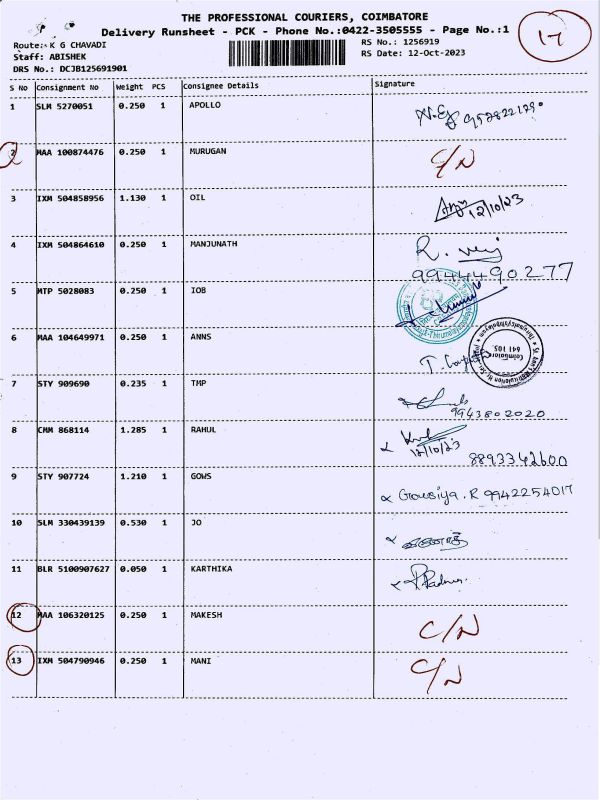 THE PROFESSIONAL COURIERS, COIMBATORE
Delivery Runsheet - PCK - Phone No.:0422-3505555 - Page No.:1
17
Route: K G CHAVADI
RS No.: 1256919
Staff: ABISHEK
RS Date: 12-Oct-2023
DRS No.: DCJB125691901
S No Consignment No Weight PCS Consignee Details Signature
1 SLM 5270051 0.250 1 APOLLO
2 MAA 100874476 0.250 1 MURUGAN C/N
3 IXM 504858956 1.130 1 OIL 12/10/23
4 IXM 504864610 0.250 1 MANJUNATH R.
9944490277
5 MTP 5028083 0.250 1 IOB
6 MAA 104649971 0.250 1 ANNS T.
Coimbatore
641 105.
7 STY 909690 0.235 1 TMP
9943802020
8 CMM 868114 1.285 1 RAHUL
12/10/23 8893342600
9 STY 907724 1.210 1 GOWS Gousiya. R 9942254017
10 SLM 330439139 0.530 1 JO
11 BLR 5100907627 0.050 1 KARTHIKA
12 MAA 106320125 0.250 1 MAKESH C/N
13 IXM 504790946 0.250 1 MANI C/N